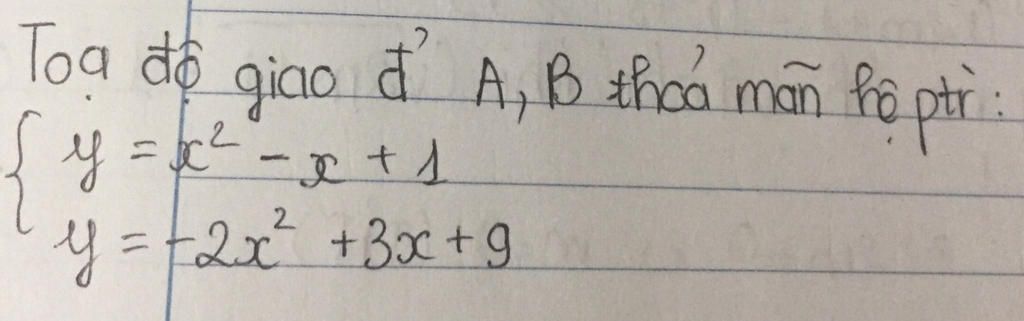 Toạ độ giao đ' A, B thoả mãn hệ ptr:
{ y = x² - x + 1
y = -2x² + 3x + 9